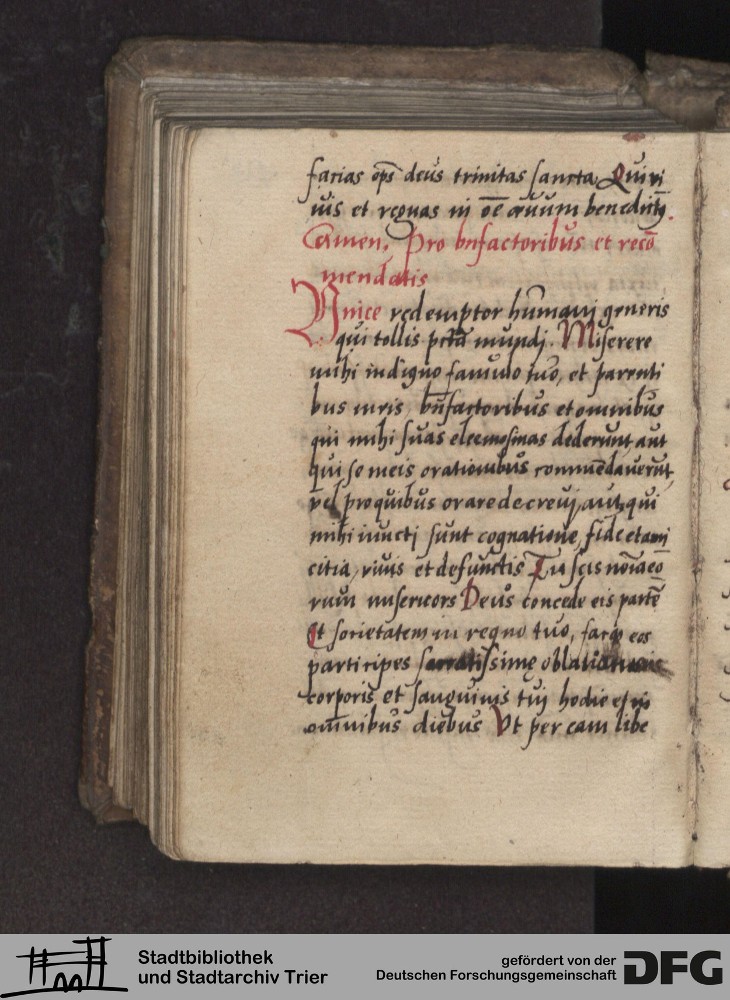 facias op̄s deus trinitas sancta Qui vi
uis et regnas in oē ævum benedict9.
Amen. Pro bn̄factoribus et recō
mendatis
Unice redemptor humani generis
qui tollis pctā mundi. Miserere
mihi indigno famulo tuo, et parenti
bus meis bn̄factoribus et omnibus
qui mihi suas elecmosinas dederunt aut
qui se meis orationibus commēdaverūt
vel pro quibus orare decrevi, aut qui
mihi iuncti sunt cognatione, fide et ami
citia, vivis et defunctis Tu scis nōia eo
rum misericors Deus concede eis partē
Et societatem in regno tuo, fac eos
participes sacratissime oblationis
corporis et sanguinis tui hodie et in
omnibus diebus Vt per eam libe
Stadtbibliothek
und Stadtarchiv Trier
gefördert von der
Deutschen Forschungsgemeinschaft
DFG